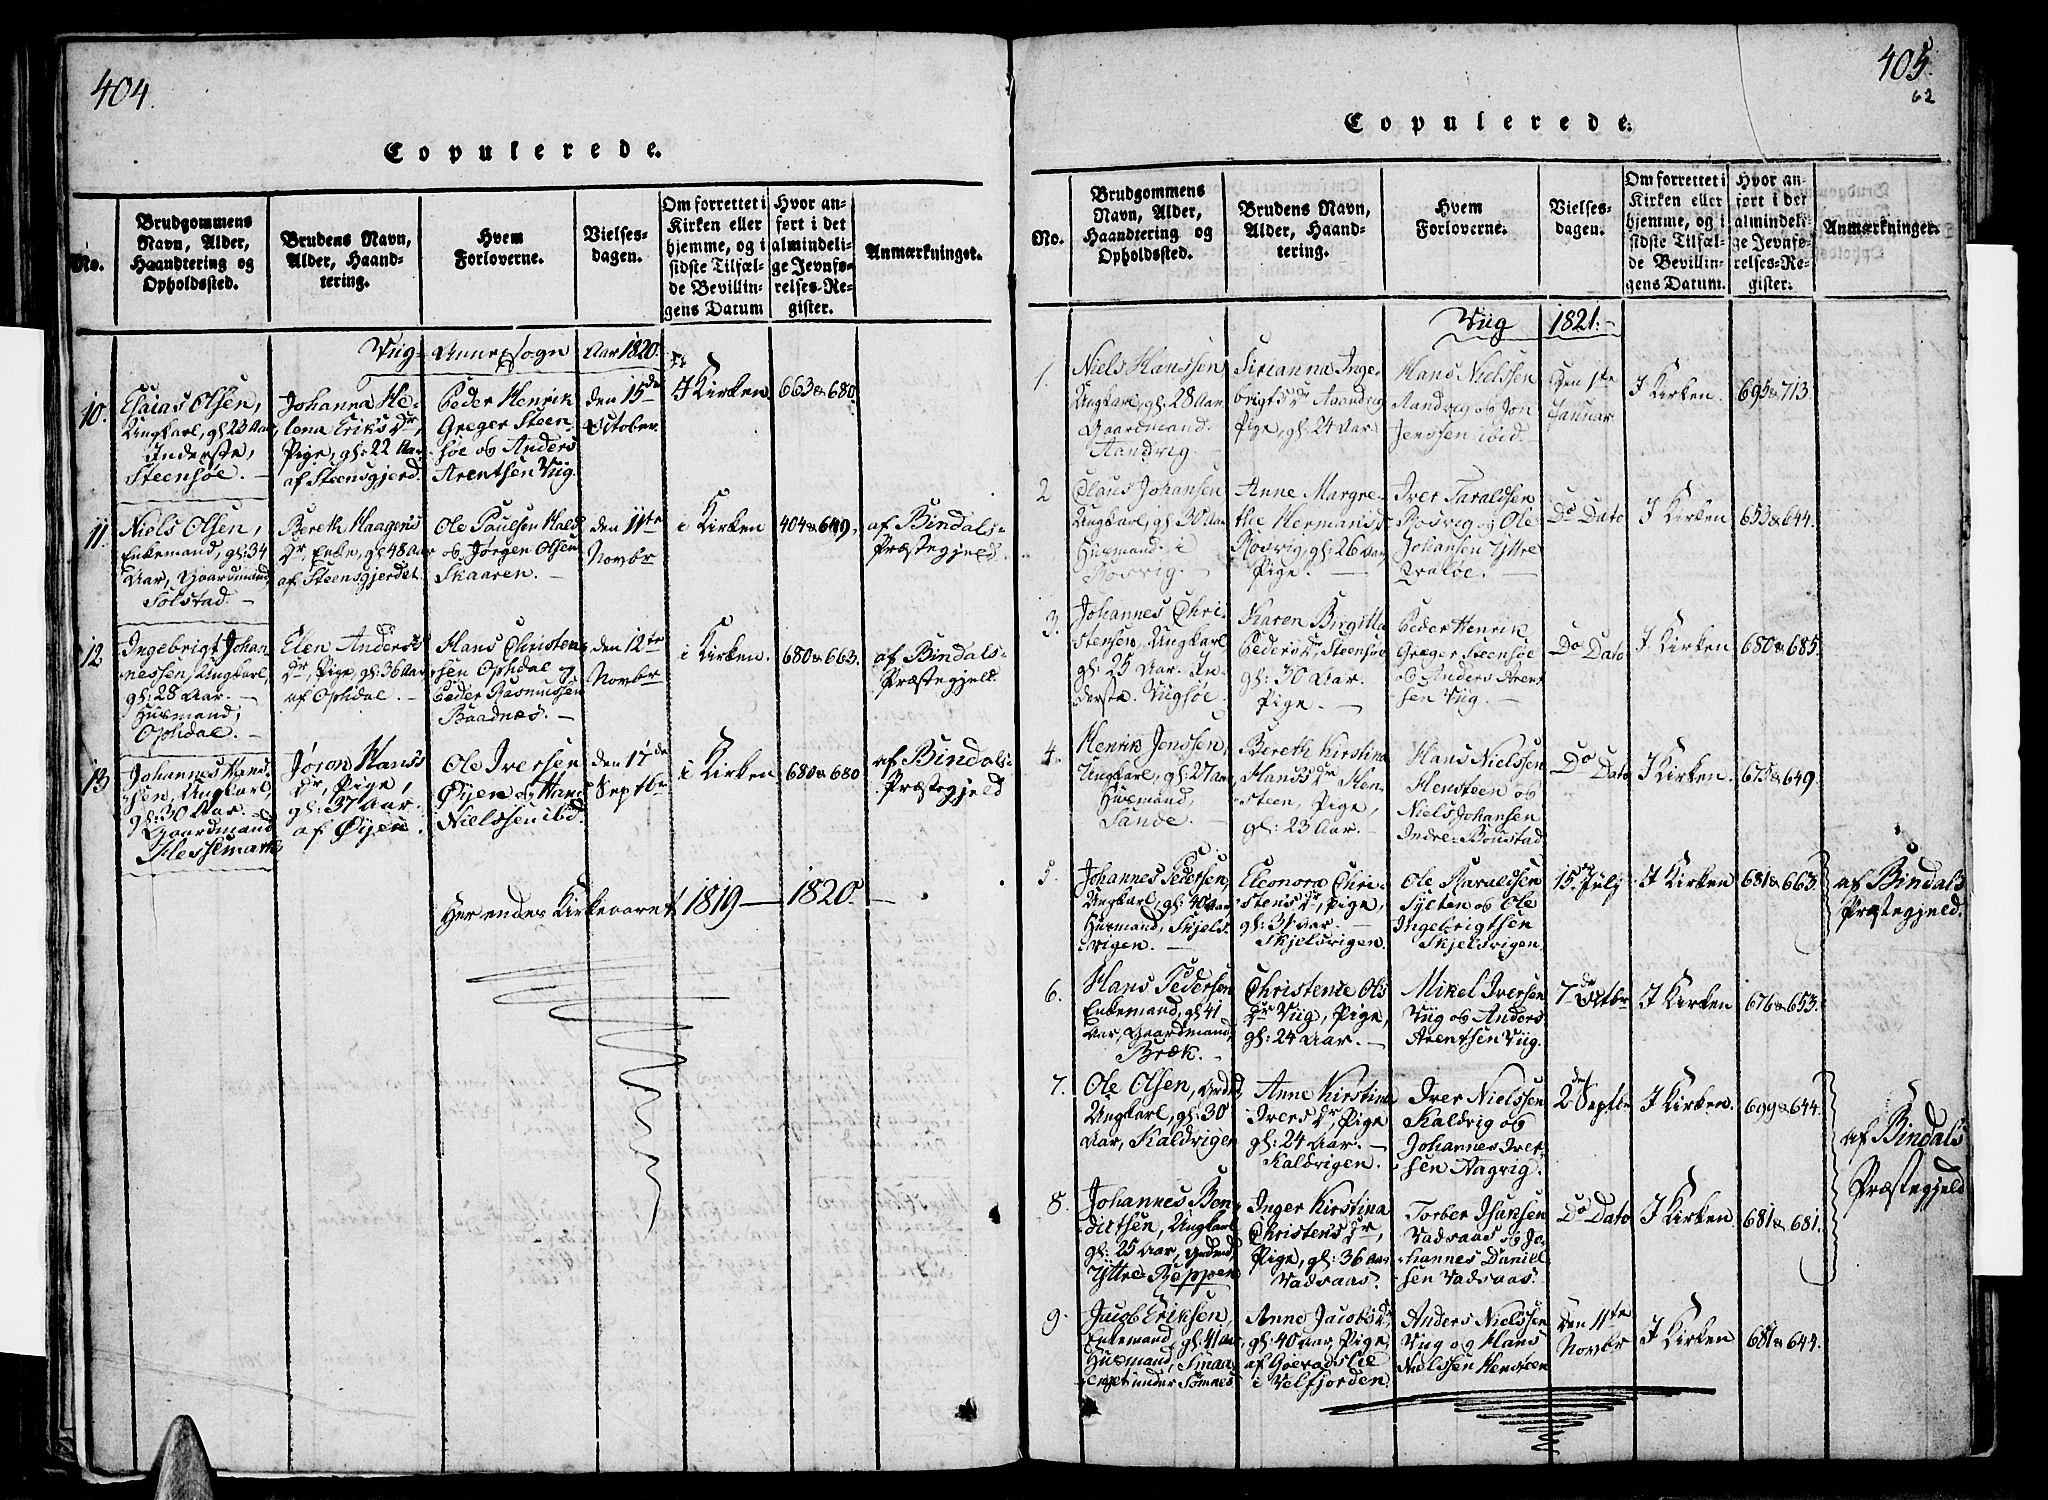 404.
Copulerede.
No.
Brudgommens
Navn, Alder,
Haandtering og
Opholdssted.
Brudens Navn,
Alder, Haand-
tering.
Hvem
Forloverne.
Vielses-
dagen.
Om forrettet i
Kirken eller
hjemme, og i
sidste Tilfæl-
de Bevillin-
gens Datum
Hvor an-
ført i det
almindeli-
ge Jevnfø-
relses-Re-
gister.
Anmærkninger.
Viig- Annexsogn Aar 1820.
10.
Esaias Olsen,
Ungkarl, gl: 23 Aar,
Inderste,
Steensøe. -
Johanna He-
lena Eriks Dr,
Pige, gl: 22 Aar
af Steensgjerd.
Peder Henrik
Greger Steen
søe og Anders
Arentsen Viig.
den 15de
October
I Kirken
663 & 680.
11.
Niels Olsen,
Enkemand, gl: 34
Aar, Gaardmand,
Solstad. -
Bereth Haagens
Dr, Enke, gl 48 Aar
af Steensgjerdet.
Ole Paulsen Hald
og Jørgen Olsen
Skaaren. -
den 11te
Novbr
i Kirken
404 & 649.
af Bindals-
Præstegjeld.
12
Ingebrigt Johan
nessen, Ungkarl,
gl: 28 Aar. -
Huusmand,
Ophdal. -
Elen Anders
Dr, Pige, gl: 36 Aar
af Ophdal. -
Hans Christen-
sen Ophdal og
Peder Rasmussen
Baadnæs. -
den 12te
Novbr
i Kirken.
680 & 663.
af Bindals-
Præstegjeld.
13
Johannes Hans-
sen, Ungkarl,
gl: 30 Aar. -
Gaardmand
Hessemark
Joron Hans
Dr, Pige,
gl: 37 Aar.
af Øyen.
Ole Iversen
Øyen og Hans
Nielssen ibd.
den 17de
Septbr
i Kirken
680 & 680
af Bindals-
Præstegjeld
Her endes Kirkeaaret 1819 - 1820. -
405.
62
Copulerede.
No.
Brudgommens
Navn, Alder,
Haandtering og
Opholdssted.
Brudens Navn,
Alder, Haand-
tering.
Hvem
Forloverne.
Vielses-
dagen.
Om forrettet i
Kirken eller
hjemme, og i
sidste Tilfæl-
de Bevillin-
gens Datum.
Hvor an-
ført i det
almindeli-
ge Jevnfø-
relses-Re-
gister.
Anmærkninger.
Viig 1821. -
1.
Niels Hanssen
Ungkarl, gl: 28 Aar
Gaardmand.
Aandvig. -
Sirianna Inge-
brigts Dr Aandvig
Pige, gl: 24 Aar
Hans Nielssen
Aandvig og Jon
Jenssen ibid. -
Den 1te
Januar
I Kirken.
695 & 713.
2
Claus Johansen
Ungkarl, gl 30 Aar
Huusmand i
Rosvig. -
Anne Margre-
the Hermansd
Rosvig, gl: 26 Aar,
Pige. -
Iver Taraldsen
Rosvig og Ole
Johansen Yttre
Qvaløe. -
Do Dato
I Kirken
653 & 644.
3.
Johannes Chri-
stensen, Ungkarl
gl: 25 Aar. In-
derste. Viigsøe.
Karen Birgitta
Peders Dr Steensøe
gl: 30 Aar.
Pige. -
Peder Henrik
Greger Steensøe
og Anders Arent
sen Viig. -
Do Dato
I Kirken
680 & 685.
4.
Henrik Jonssen,
Ungkarl, gl: 27 Aar
Huusmand,
Sande. -
Bereth Kirstina
Hanss Dr Hen-
steen, Pige,
gl: 23 Aar. -
Hans Nielssen
Hensteen og
Niels Johansen
Indre-Boustad.
Do Dato
I Kirken.
675 & 649.
5.
Johannes Pedersen,
Ungkarl, gl: 40 Aar
Huusmand, Skjels-
vigen. -
Eleonora Chri-
stens Dr, Pige,
gl: 31 Aar. -
Skjelsvigen.
Ole Haraldsen
Sylten og Ole
Ingebrigtsen
Skjelsvigen.
15de July
I Kirken
681 & 663.
af Bindals
Præstegjeld.
6.
Hans Pedersen
Enkemand, gl: 41
Aar, Gaardmand,
Bræk. -
Christense Ols
Dr Viig, Pige,
gl: 24 Aar. -
Mikel Iversen
Viig og Anders
Arentsen Viig.
7de Octbr
I Kirken
676 & 653.
7.
Ole Olsen,
Ungkarl, gl: 30
Aar, Kaldvigen
Anne Kirstina
Ivers Dr, Pige
gl: 24 Aar. -
Kaldvigen.
Iver Nielssen
Kaldvig og
Johannes Iver-
sen Aagvig.
2den Septbr
I Kirken.
699 & 644.
af Bindals
Præstegjeld
8.
Johannes Ben-
dictsen, Ungkarl
gl: 25 Aar,
Yttre-Reppen
Inger Kirstina
Christens Dr,
Pige, gl: 36 Aar
Vadsaas.
Torber Isaksen
Vadsaas og Jo-
hannes Daniel
sen Vadsaas.
Do Dato
I Kirken
681 & 681.
9.
Jacob Eriksen,
Enkemand, gl: 41 Aar
Huusmand, Smaa-
under Sømnes
Anne Jacobs Dr
gl: 40 Aar, Pige,
af
i Velfjorden.
Anders Nielssen
Viig og Hans
Nielssen Hensteen
Den 11te
Novbr
I Kirken
681 & 644.